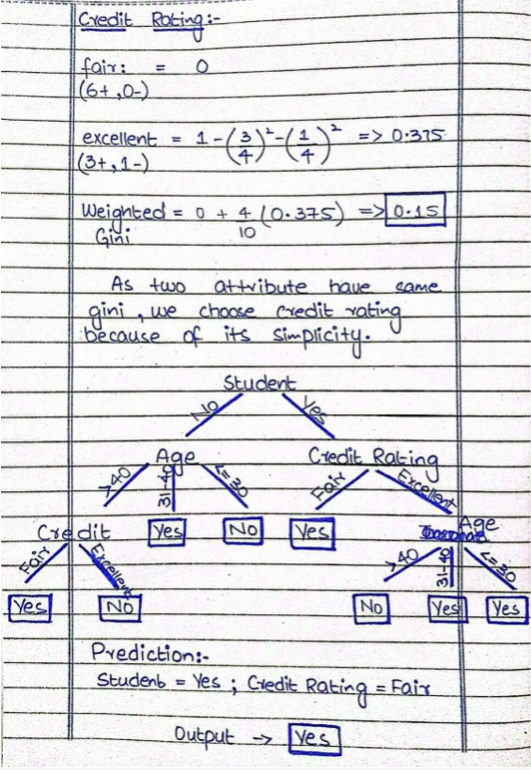 Credit Rating:-
fair: = 0
(6+,0-)
excellent = 1-(3/4)²-(1/4)² => 0.375
(3+,1-)
Weighted = 0 + 4/10 (0.375) => 0.15
Gini
As two attribute have same
gini, we choose credit rating
because of its simplicity.
Student
No Yes
Age Credit Rating
>40 31-40 <=30 Fair Excellent
Credit Yes No Yes Age
Fair Excellent >40 31-40 <=30
Yes No No Yes Yes
Prediction:-
Student = Yes ; Credit Rating = Fair
Output -> Yes